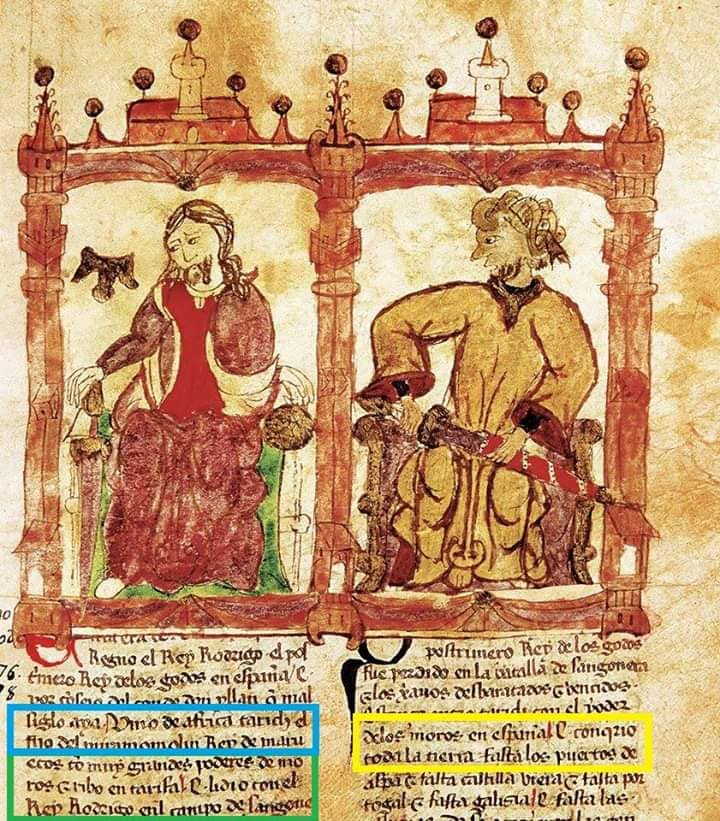 Regno el Rey Rodrigo el pos
t'mero Rey delos godos en españa / E
por cōsejo del don yllan q̄ mal
siglo aya Vino de africa tarich el
fijo del miramomolin Rey de marru
ecos cō muy grandes poderes de mo
ros & ribo en tarifa / E lidio con el
Rey Rodrigo enl campo de sangone
postrimero Rey de los godos
fue perdido en la batalla de sangonera
& los xanos desbaratados & vencidos
con el poder
delos moros en españa / E conqrio
toda la tierra fasta los puertos de
aspa & fasta castilla vieia & fasta por
togal & fasta galisia / E fasta las